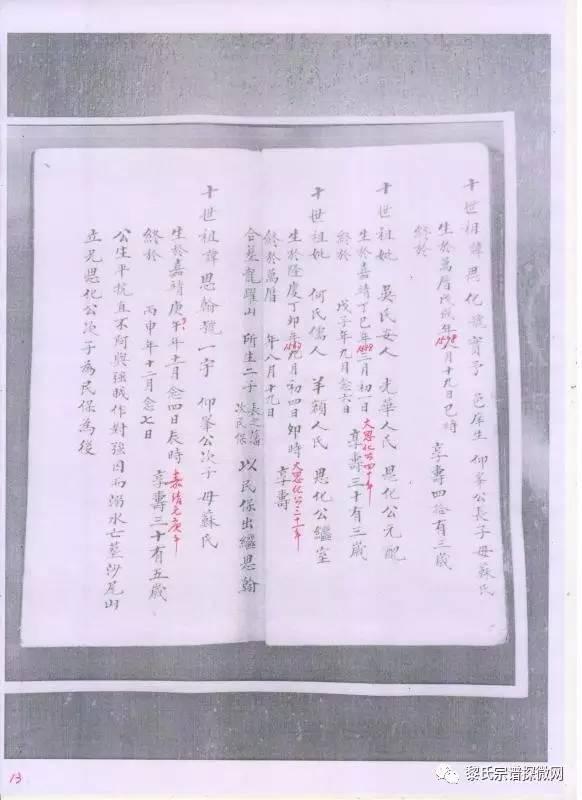 十世祖諱思化號賓予 邑庠生 仰峯公長子母蘇氏
生於萬曆戊戌年八月十九日巳時
1598
終於
享壽四拾有三歲
十世祖妣 吳氏安人 光華人民 思化公元配
生於嘉靖丁巳年三月初一日
大思化公四十年
終於 戊子年九月愈六日
享壽三十有三歲
十世祖妣 何氏儒人 羊額人民 思化公繼室
生於隆慶丁卯年九月初四日卯時
1567
大思化公三十一年
終於萬曆 年八月十九日
享壽
合墓龍躍山 所生二子 長之藩 次民保 以民保出繼思翰
十世祖諱思翰號一宇 仰峯公次子 母蘇氏
生於嘉靖庚午年十一月愈四日辰時
嘉靖无庚午
終於 丙申年十二月愈七日
享壽三十有五歲
公生平抗直不阿與強賊作對強因而溺水亡墓沙尾山
立兄思化公次子為民保為後
13
黎氏宗谱探微网